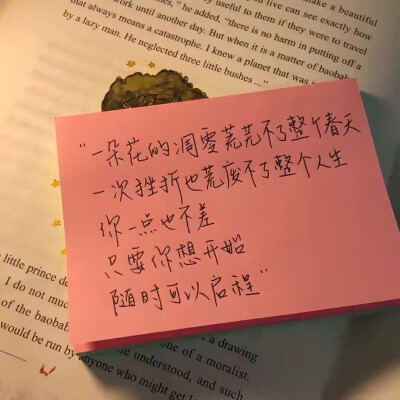 make a beautiful
live can see exactly how
useful to them if they were to travel
he added, "there is no harm in putting off a
work until another day. But when it is a matter of baobab
that always means a catastrophe. I knew a planet that was
by a lazy man. He neglected three little bushes ..."
"一朵花的凋零荒芜不了整个春天
一次挫折也荒废不了整个人生
你一点也不差
只要你想开始
随时可以启程"
little prince
I do not much
of the baobab
would be run by anyone who might get
a drawing
one of a moralist.
understood, and such